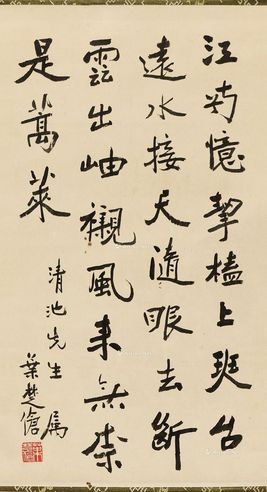 江村憶挈榼上班台
遠水接天隨眼去斷
雲出岫襯風来無奈
是蒿萊
清池先生属
葉楚傖